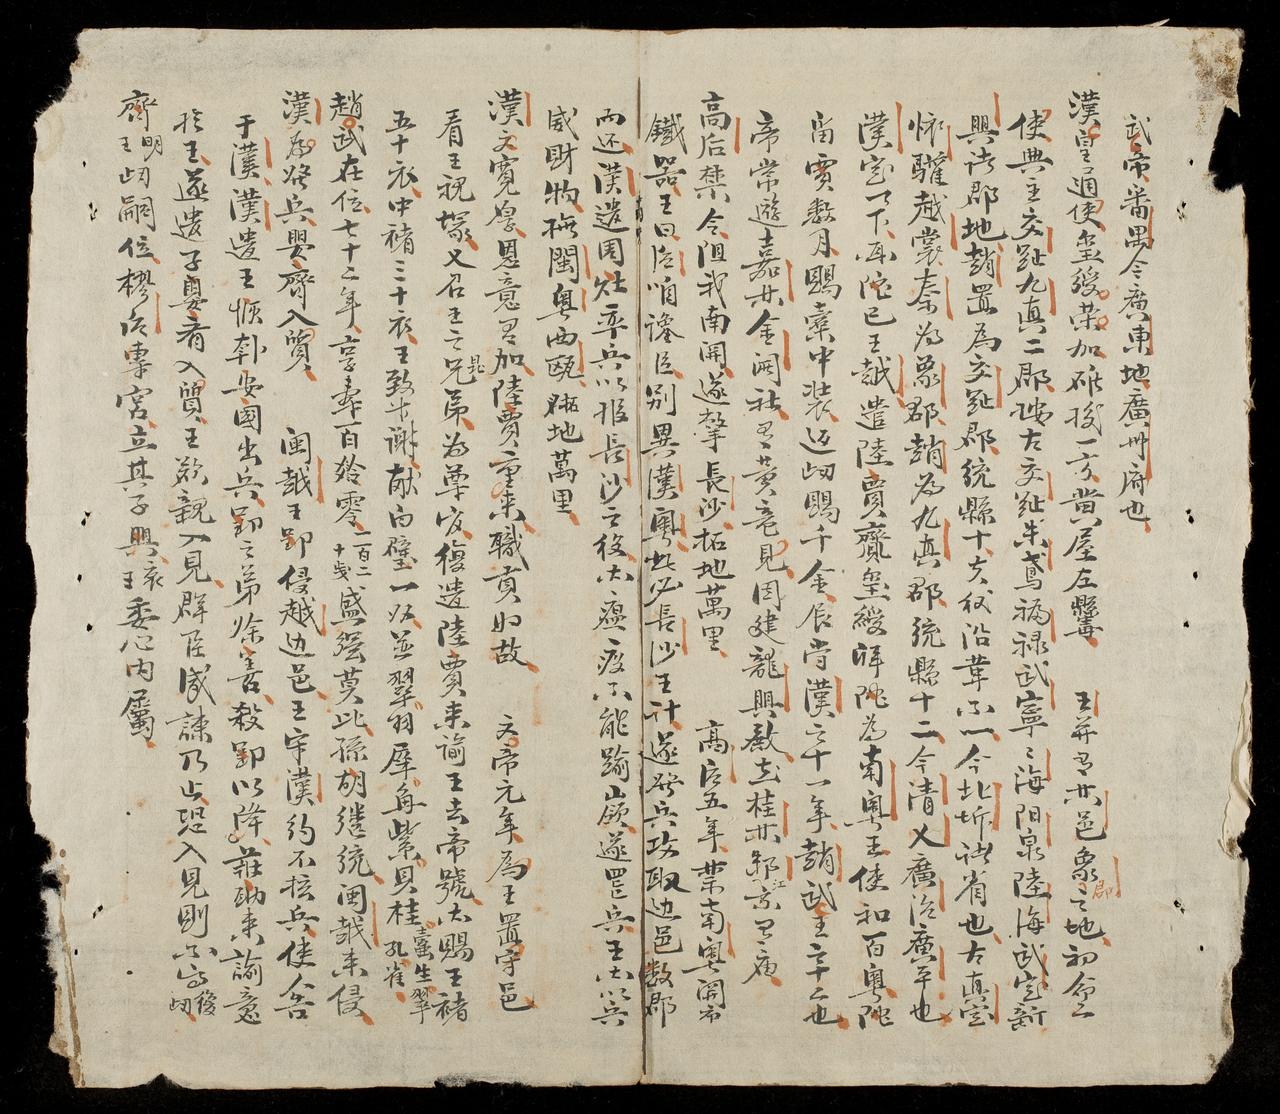 武帝番禺今廣東地廣州府也
漢皇通使璽綬榮加雄授一方黃屋左纛 王并有其邑象郡之地初命二
使典主交趾九真二郡按古交趾朱鳶福禄武寧々海阳泉陸海武定新
興諸郡地趙置為交趾郡統縣十其後沿革不一今北圻諸省也古真定
懷驩越裳秦為象郡趙為九真郡統縣十二今清乂廣治廣平也
漢定天下再陀已王越遣陸賈齎璽綬拜陀為南粵王使和百粵陀
留賈数月賜橐中裝返賜千金辰尚漢之十一年趙武王之十二也
帝常遊嘉其金洞社有黃竜見因建龍興殿在桂其鄉江京有庙
高后禁令阻我南開遂擊長沙拓地萬里 高后五年禁南粵開市
鐵器王曰后聽讒臣别異漢粵此必長沙王計遂發兵攻取边邑数郡
而还漢遣周灶率兵以报長沙之役大瘟疫不能踰山領遂罷兵王因以兵
威財物撫閩粵西甌駱地萬里
漢文寬厚恩意有加陸賈重来職貢如故 文帝元年為王置守邑
看王親塚又召王之兄弟為尊官復遣陸賈来諭王去帝號大賜王褚
五十衣中褚三十衣王致書謝献白璧一双並翠羽犀角紫貝桂蠹生翠孔雀
趙武在位七十二年享壽一百餘零一百二十歲盛强莫比孫胡继統閩越来侵
漢為發兵嬰齊入質 閩越王郢侵越边邑王守漢約不拡兵使告
于漢漢遣王恢韓安國出兵郢之弟餘善殺郢以降莊助来諭意
於王遂遣子嬰齊入質王欲親入見群臣咸諫乃止恐入見則不好後
齊明王嗣位樛后專宫立其子興哀王委心内屬